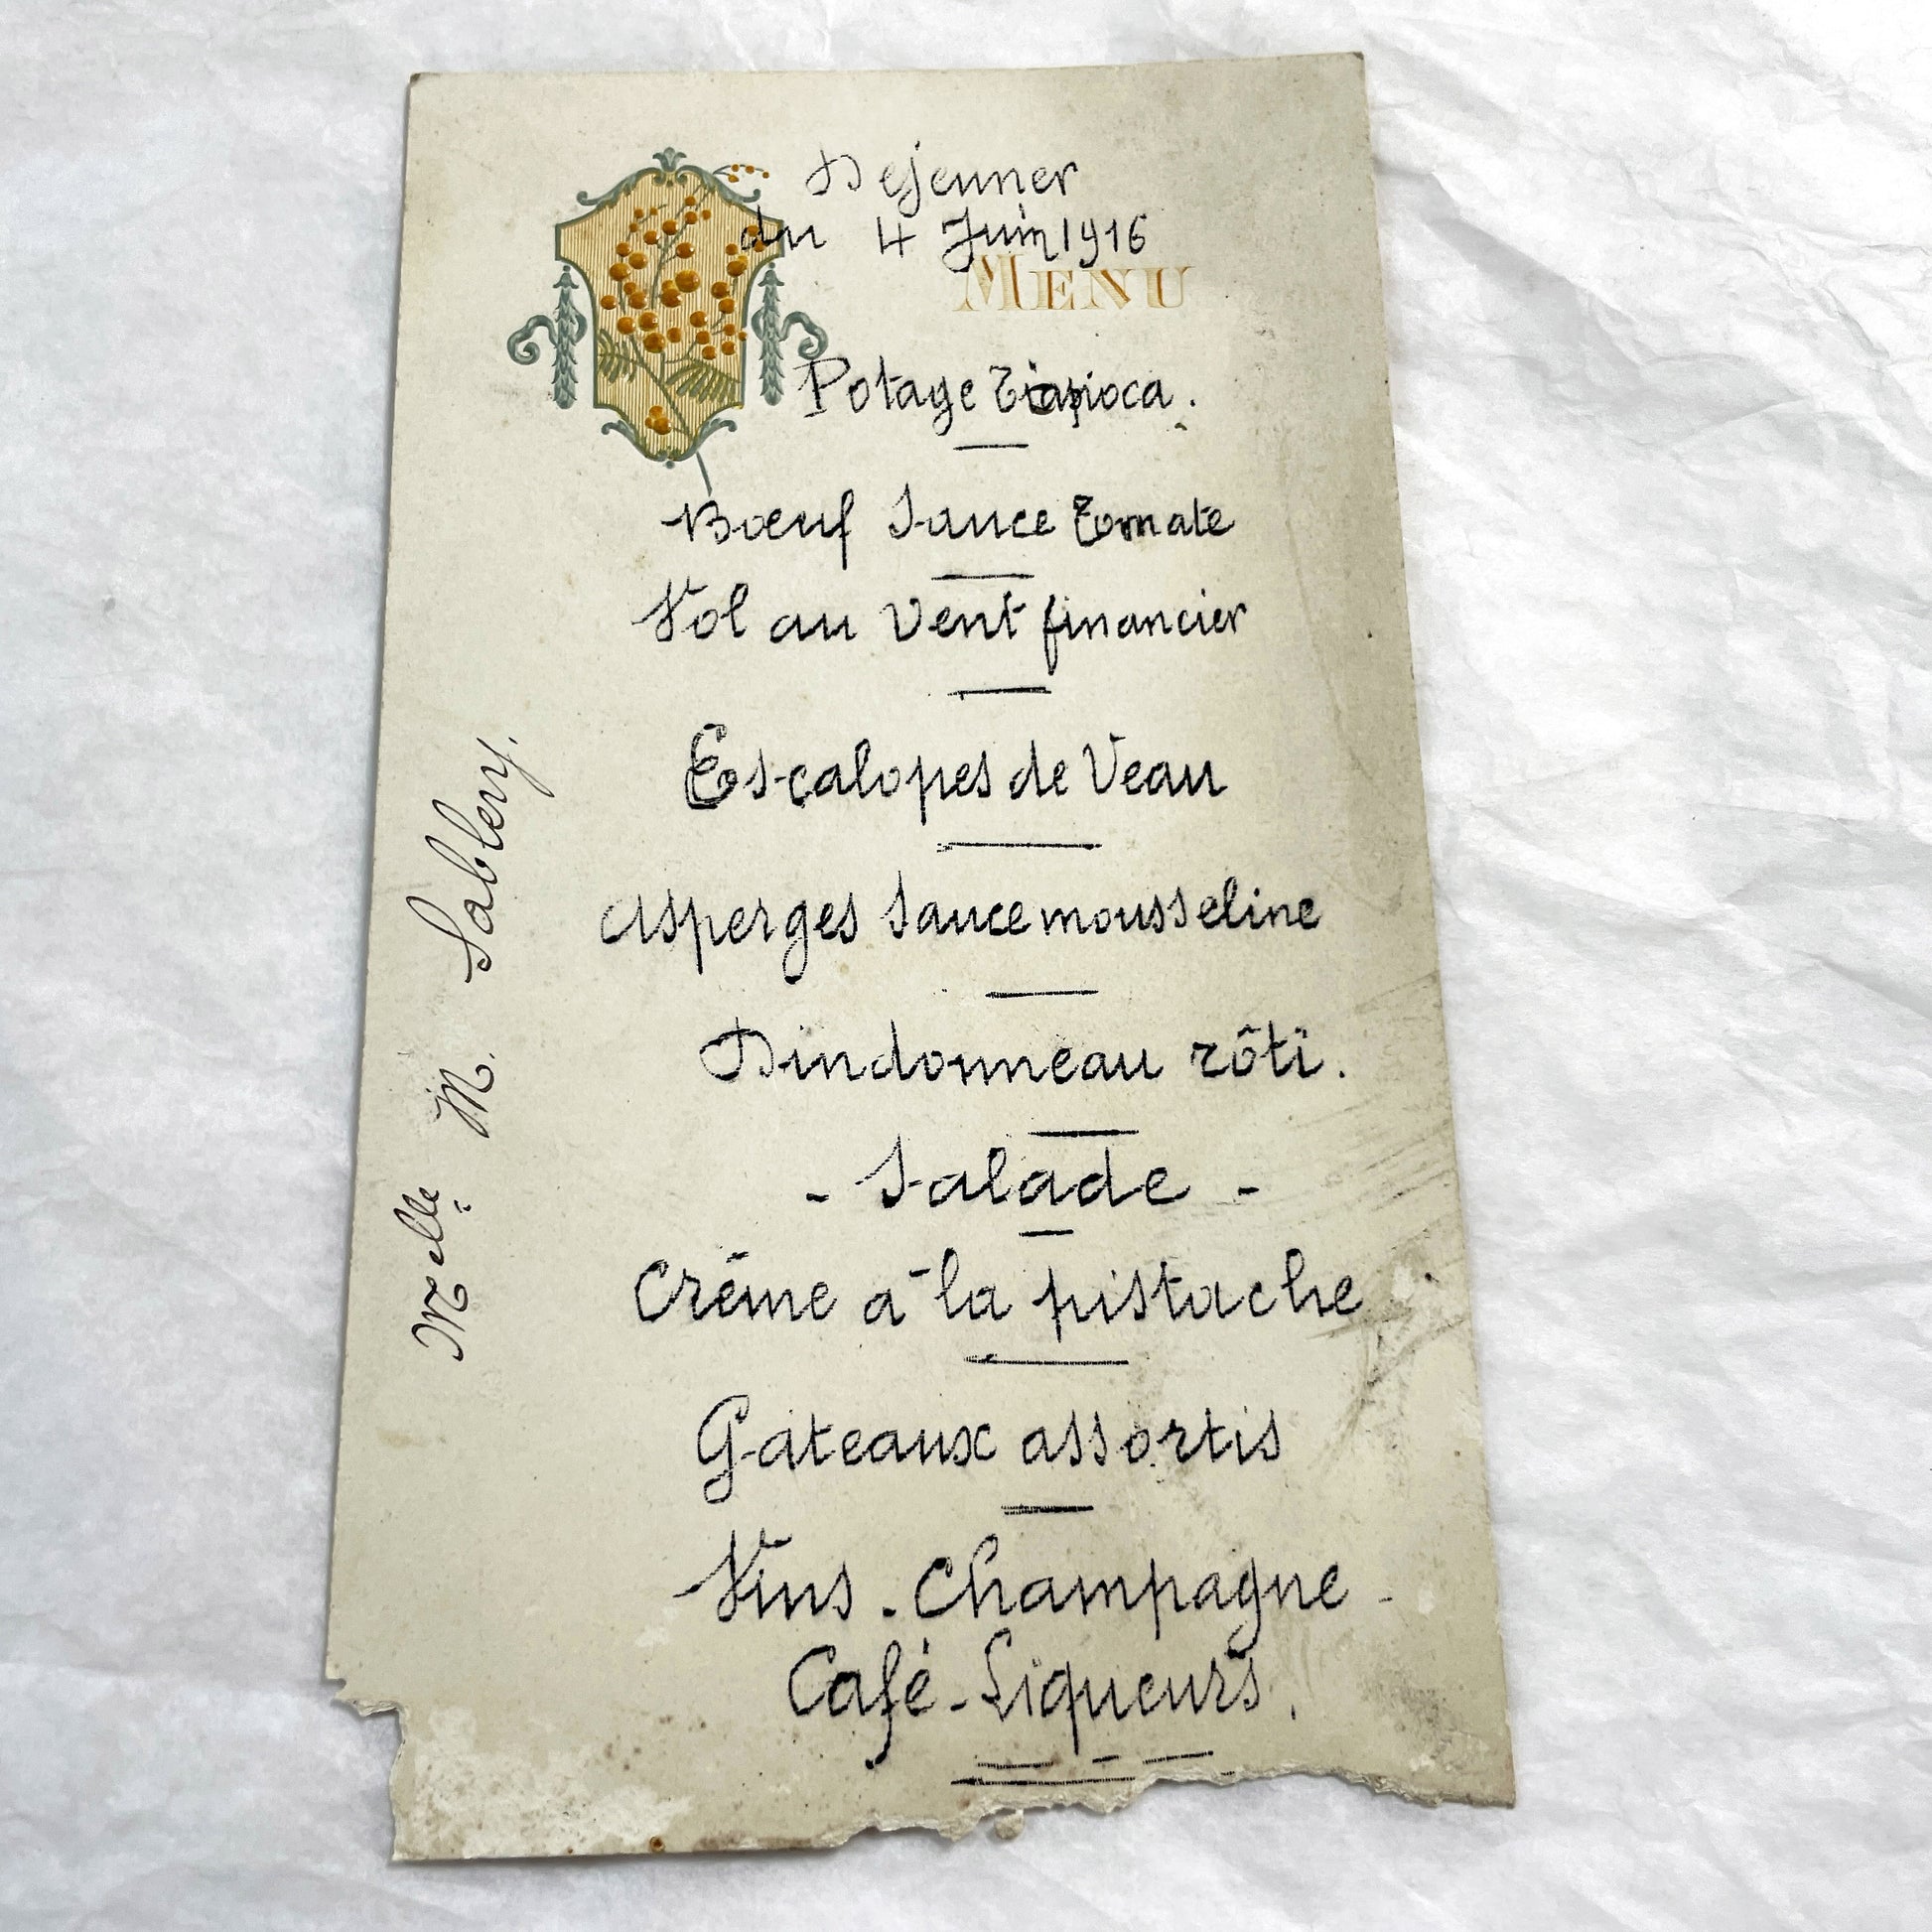 Dejeuner
du 4 Juin 1916
MENU
Potage Tapioca.
Bœuf Sauce Tomate
Vol au Vent financier
Escalopes de Veau
Asperges Sauce mousseline
Dindonneau rôti.
- Salade -
Crême à la pistache
Gateaux assortis
Vins - Champagne -
Café - Liqueurs.
Melle M. Sablery.